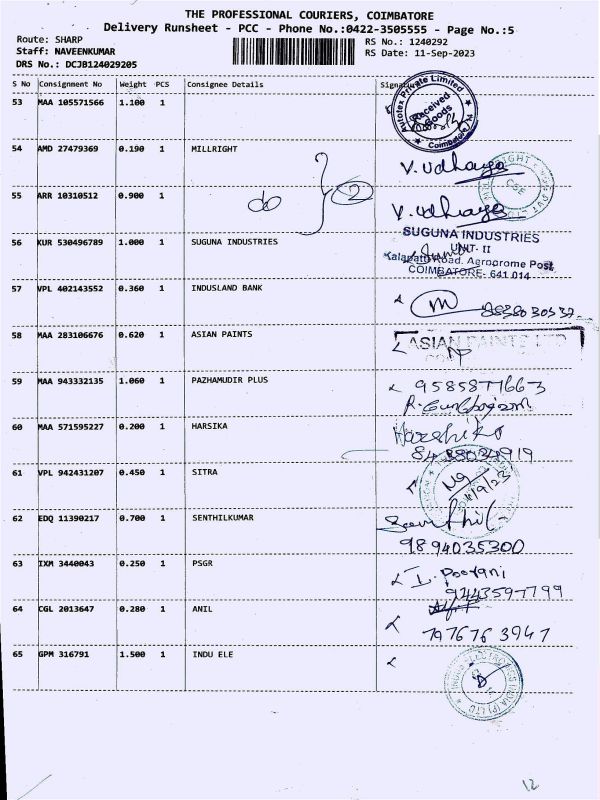 THE PROFESSIONAL COURIERS, COIMBATORE
Delivery Runsheet - PCC - Phone No.:0422-3505555 - Page No.:5
Route: SHARP
RS No.: 1240292
Staff: NAVEENKUMAR
RS Date: 11-Sep-2023
DRS No.: DCJB124029205
S No Consignment No Weight PCS Consignee Details Signature
53 MAA 105571566 1.100 1
Autotex Private Limited
Received Goods
Coimbatore
54 AMD 27479369 0.190 1 MILLRIGHT
V. Udhaya
CGE
55 ARR 10310512 0.900 1
do 2
V. Udhaya
56 KUR 530496789 1.000 1 SUGUNA INDUSTRIES
SUGUNA INDUSTRIES
UNIT- II
Kalapatti Road. Agroprome Post
COIMBATORE- 641 014
57 VPL 402143552 0.360 1 INDUSLAND BANK
58 MAA 283106676 0.620 1 ASIAN PAINTS
ASIAN PAINTS LTD
59 MAA 943332135 1.060 1 PAZHAMUDIR PLUS
9585877663
60 MAA 571595227 0.200 1 HARSIKA
Harshika
61 VPL 942431207 0.450 1 SITRA
11/9/23
62 EDQ 11390217 0.700 1 SENTHILKUMAR
Senthil
9894035300
63 IXM 3440043 0.250 1 PSGR
9443597799
64 CGL 2013647 0.280 1 ANIL
7976763947
65 GPM 316791 1.500 1 INDU ELE
12